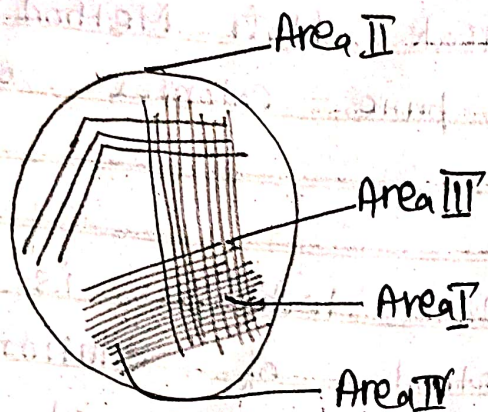 Area II
Area III
Area I
Area IV